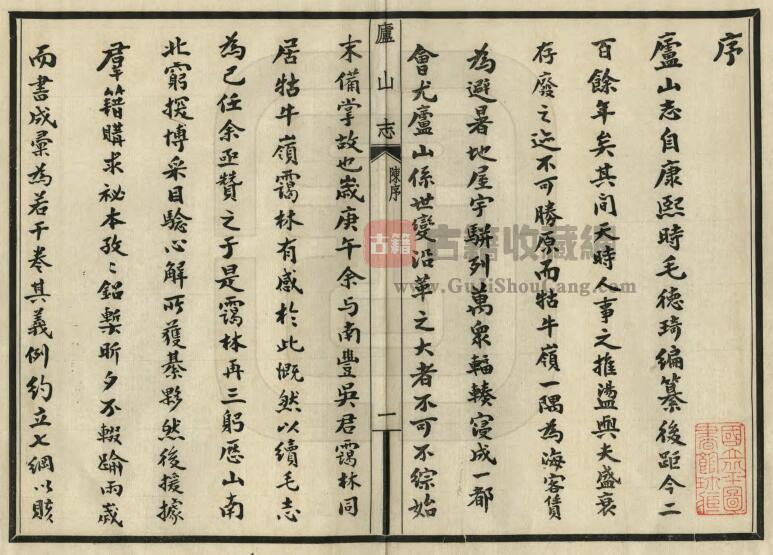 序
廬山志自康熙時毛德琦編纂後距今二
百餘年矣其间天時人事之推盪與夫盛衰
存廢之迹不可勝原而牯牛嶺一隅為海客賃
為避暑地屋宇駢列萬衆輻輳寖成一都
會尤廬山係世變沿革之大者不可不綜始
廬山志
陳序
一
末備掌故也歲庚午余与南豐吳君靄林同
居牯牛嶺靄林有感於此慨然以續毛志
為己任余亟贊之于是靄林再三躬歷山南
北窮探博采目驗心解所獲綦夥然後援據
羣籍購求祕本孜〻鉛槧昕夕不輟踰兩歲
而書成彙為若干卷其義例約立七綱以賅
古籍
古籍收藏網
www.GuJiShouCang.com